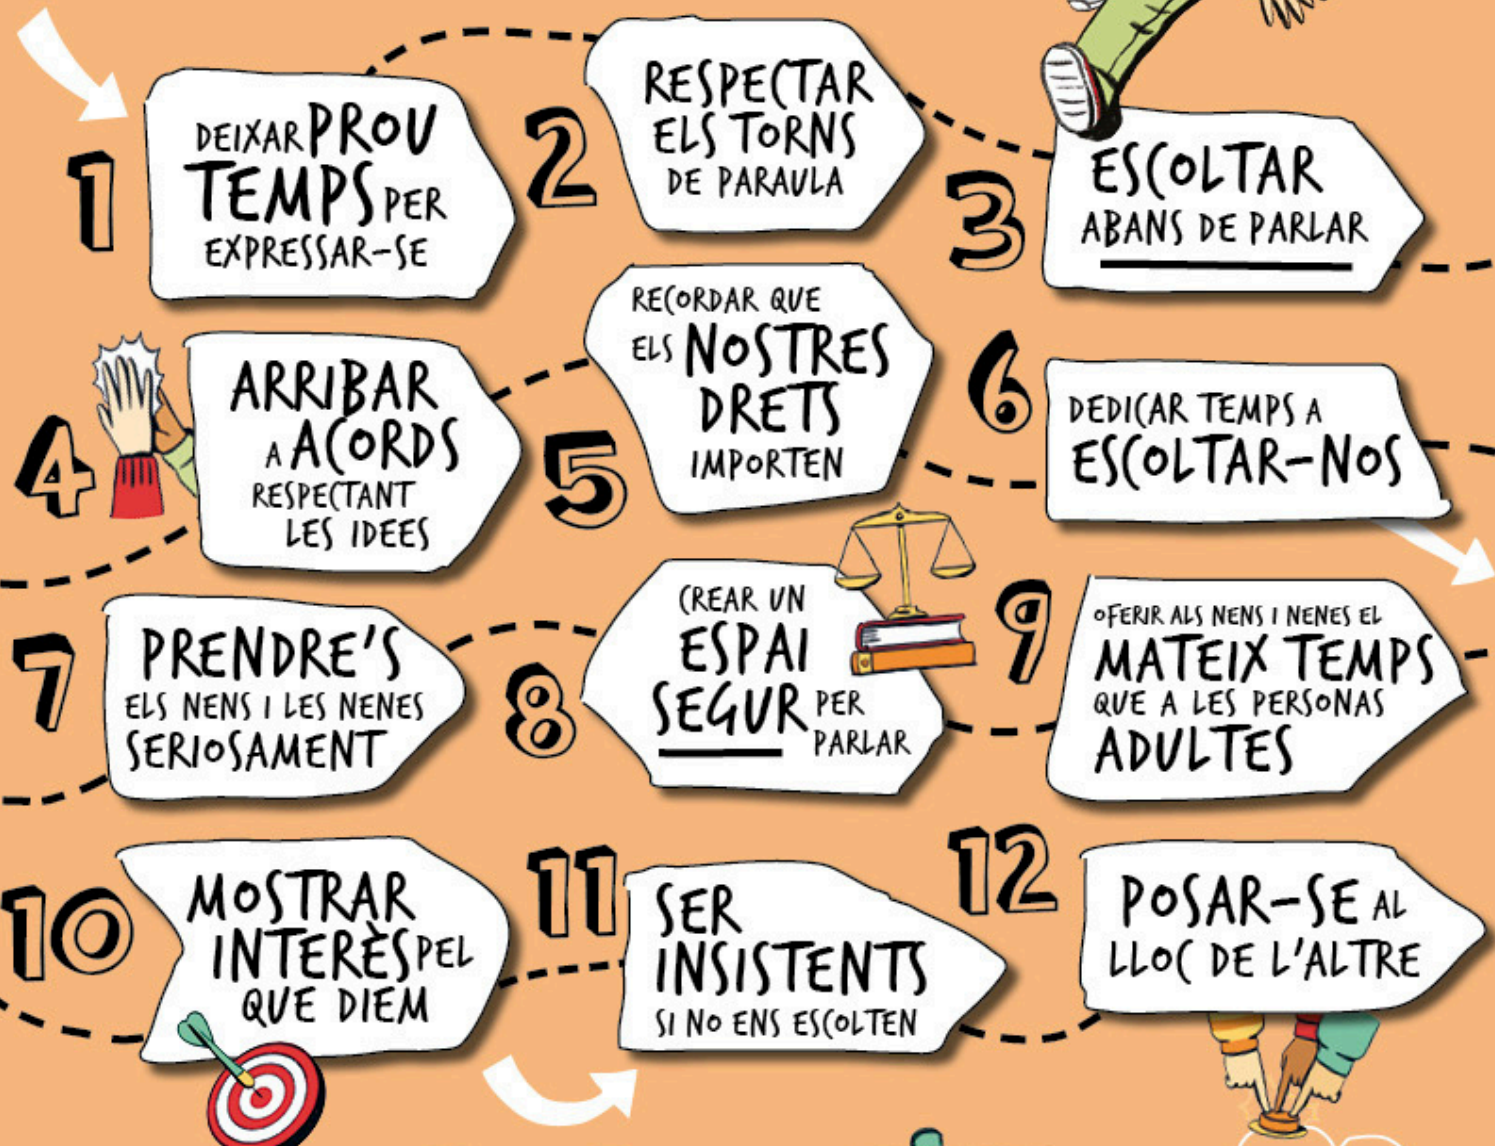 1
DEIXAR PROU
TEMPS PER
EXPRESSAR-SE
2
RESPECTAR
ELS TORNS
DE PARAULA
3
ESCOLTAR
ABANS DE PARLAR
4
ARRIBAR
A ACORDS
RESPECTANT
LES IDEES
5
RECORDAR QUE
ELS NOSTRES
DRETS
IMPORTEN
6
DEDICAR TEMPS A
ESCOLTAR-NOS
7
PRENDRE'S
ELS NENS I LES NENES
SERIOSAMENT
8
CREAR UN
ESPAI
SEGUR PER
PARLAR
9
OFERIR ALS NENS I NENES EL
MATEIX TEMPS
QUE A LES PERSONAS
ADULTES
10
MOSTRAR
INTERÈS PEL
QUE DIEM
11
SER
INSISTENTS
SI NO ENS ESCOLTEN
12
POSAR-SE AL
LLOC DE L'ALTRE